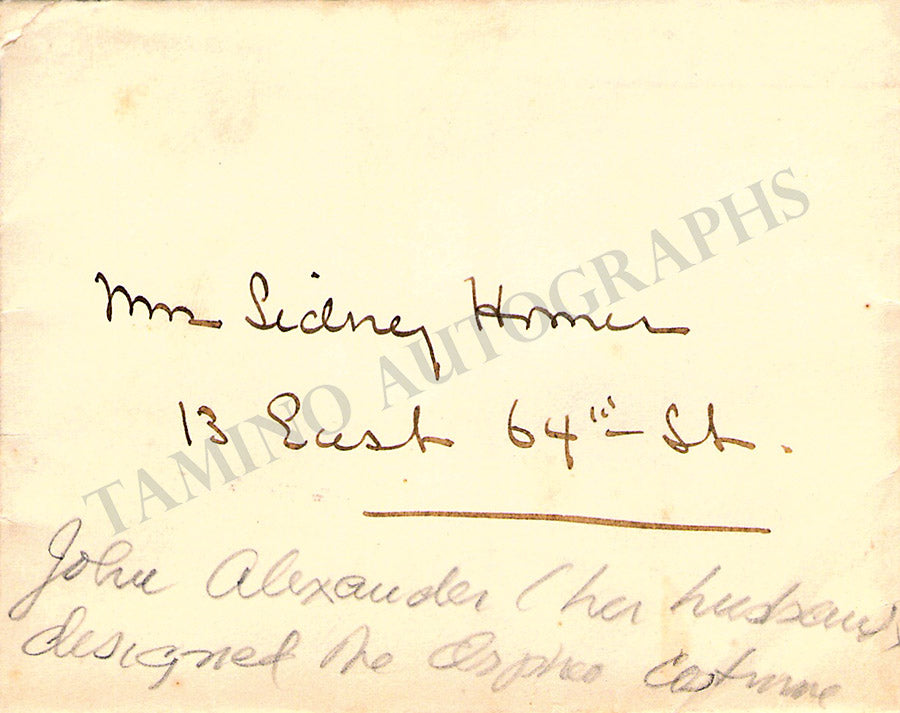 Mrs Sidney Homer
13 East 64th St.
TAMINO AUTOGRAPHS
John Alexander (her husband)
designed the Orpheo costume